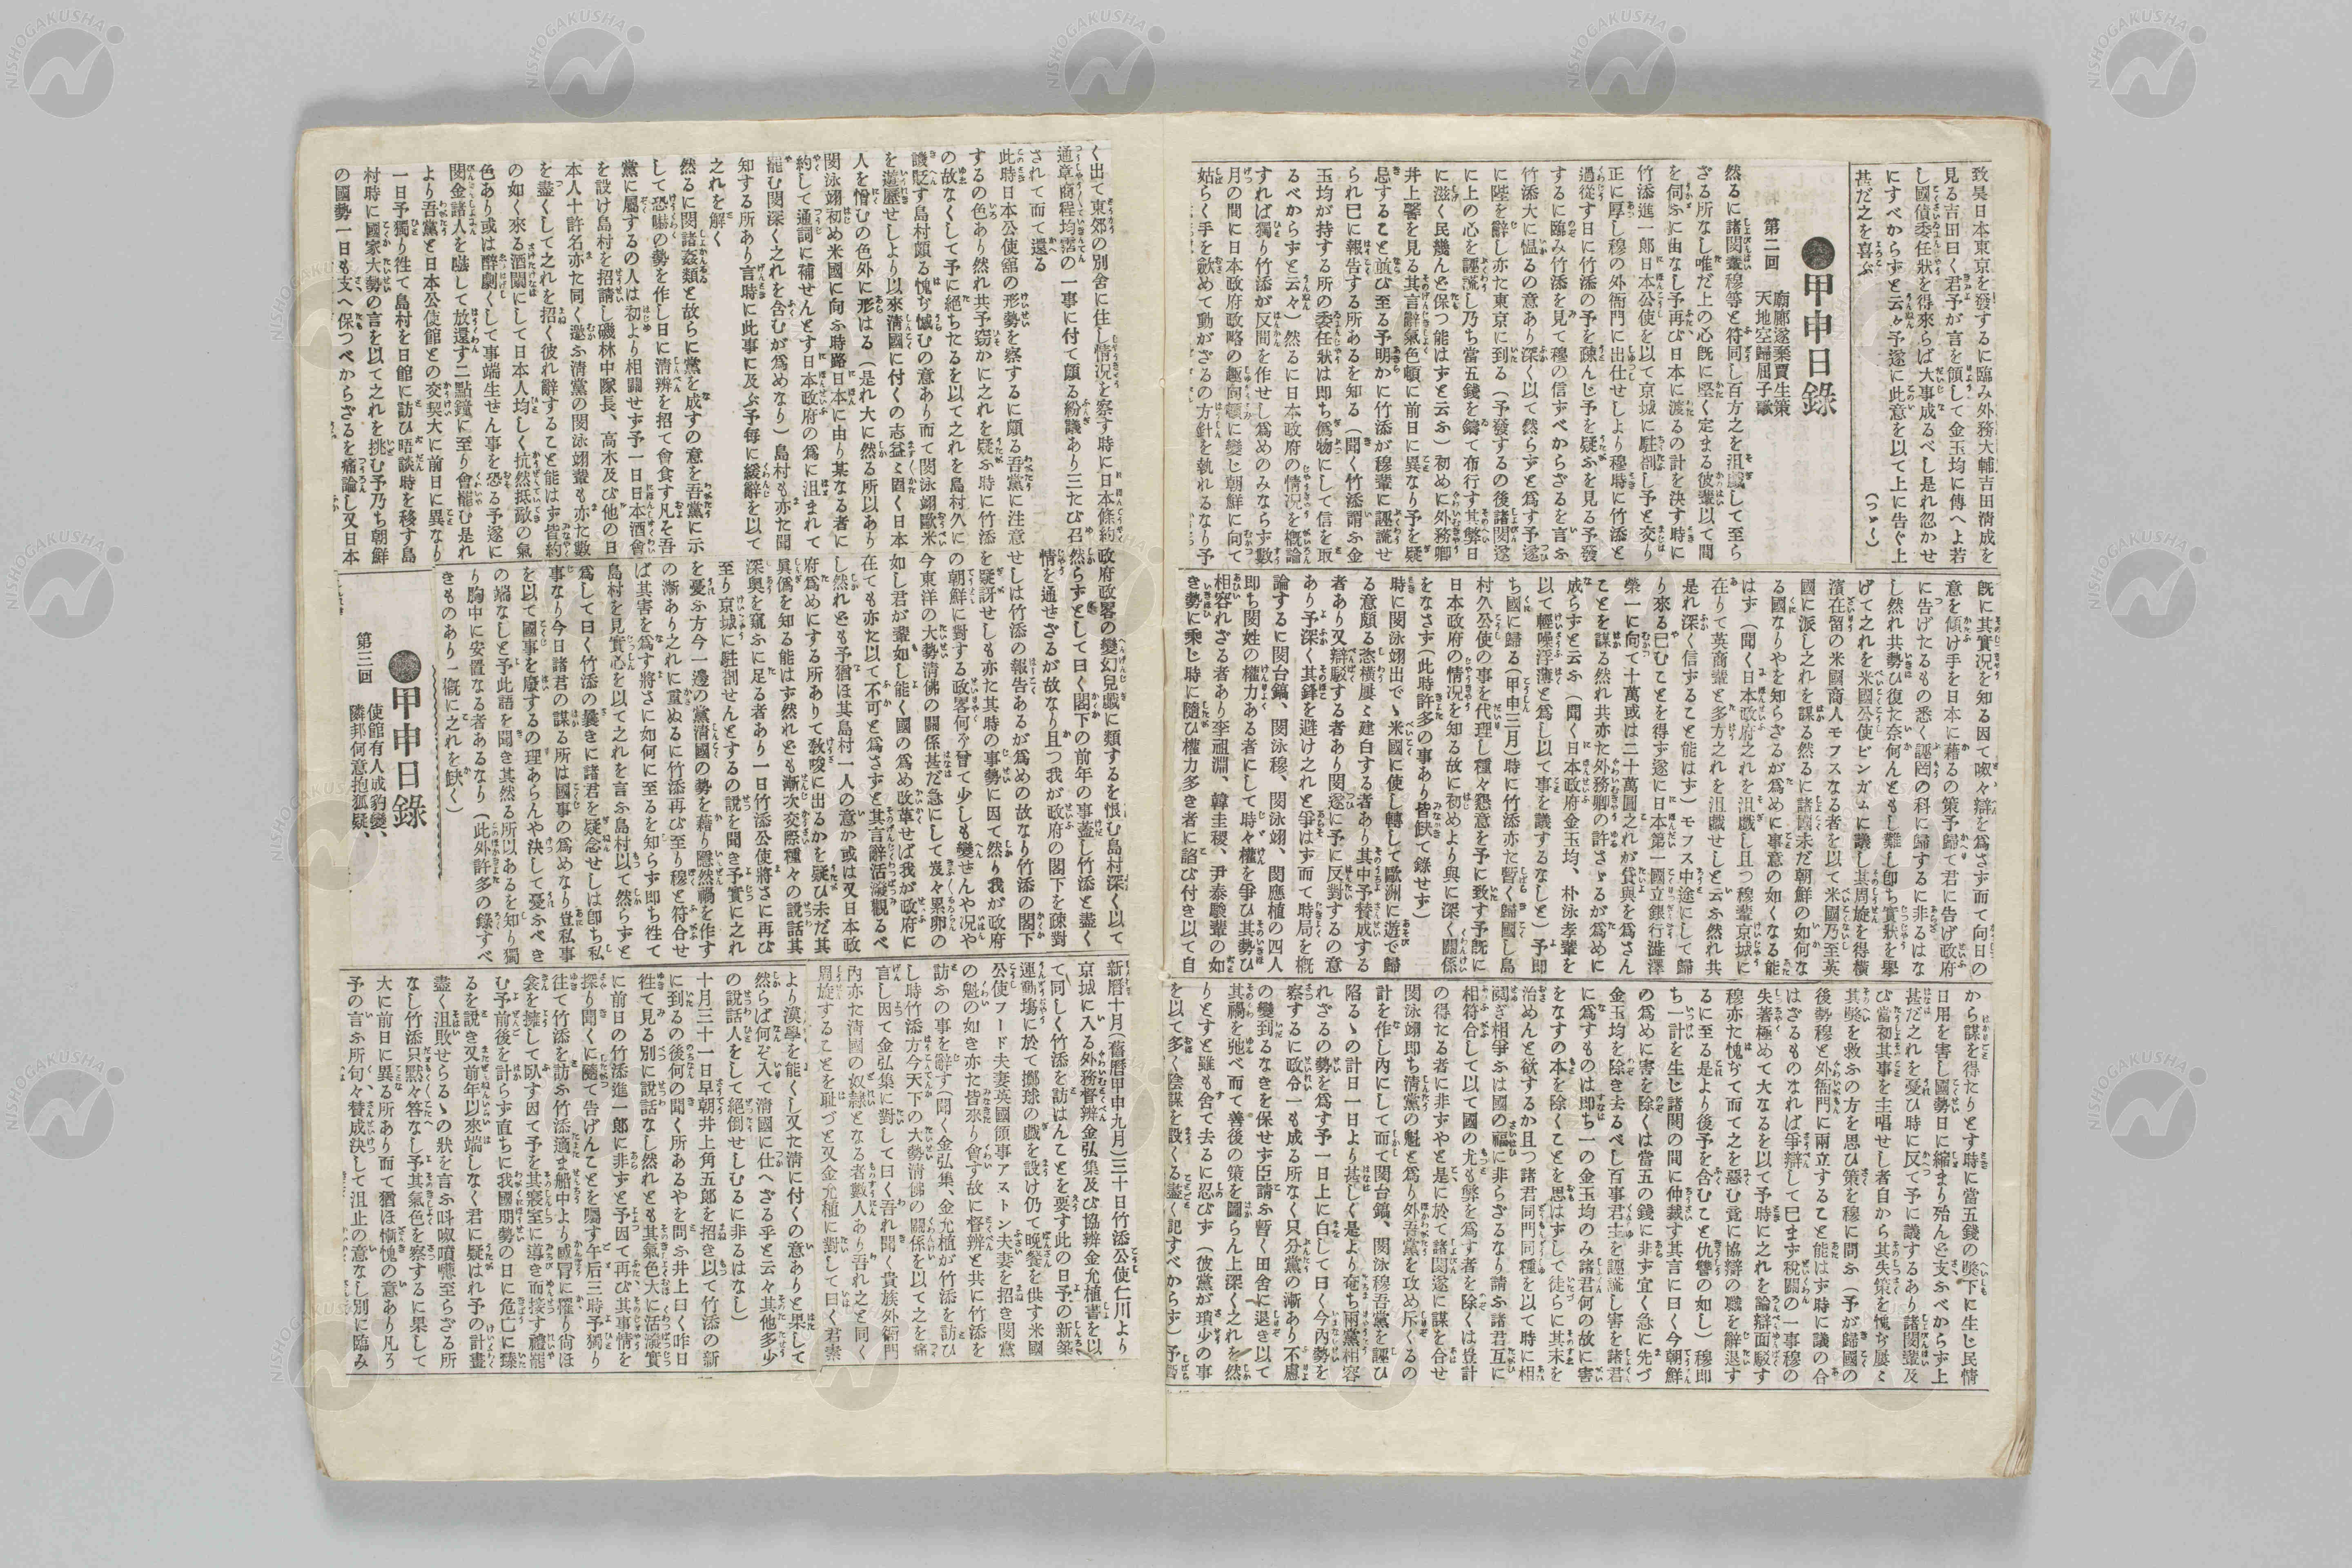 致㒵日本東京を發するに臨み外務大輔吉田淸成を
見る吉田曰く君予が言を領して金玉均に傳へよ若
し國債委任狀を得來らば大事成るべし是れ忽かせ
にすべからずと云々予遂に此意を以て上に告ぐ上
甚だ之を喜ぶ
(つゞく)
●甲申日錄
第二回
廟廊遂棄賈生策
天地空歸屈子歌
然るに諸閔輩穆等と符同し百方之を沮戱して至ら
ざる所なし唯だ上の心旣に堅く定まる彼輩以て間
を伺ふに由なし予再び日本に渡るの計を決す時に
竹添進一郎日本公使を以て京城に駐劄し予と交り
正に厚し穆の外衙門に出仕せしより穆時に竹添と
過從す日に竹添の予を疎んじ予を疑ふを見る予發
するに臨み竹添を見て穆の信ずべからざるを言ふ
竹添大に慍るの意あり深く以て然らずと爲す予遂
に陛を辭し亦た東京に到る(予發するの後諸閔遂
に上の心を誣謊し乃ち當五錢を鑄て布行す其弊日
に滋く民幾んど保つ能はずと云ふ)初めに外務卿
井上馨を見る其言辭氣色頓に前日に異なり予を疑
忌すること並び至る予明かに竹添が穆輩に誣謊せ
られ已に報告する所あるを知る(聞く竹添謂ふ金
玉均が持する所の委任狀は即ち僞物にして信を取
るべからずと云々)然るに日本政府の情況を概論
すれば獨り竹添が反間を作せし爲めのみならず數
月の間に日本政府政略の趣向頓に變じ朝鮮に向て
姑らく手を歛めて動がざるの方針を執れるなり予
旣に其實況を知る因て呶々辯を爲さず而て向日の
意を傾け手を日本に藉るの策予歸て君に告げ政府
に告げたるもの悉く誣罔の科に歸するに非るはな
し然れ共勢ひ復た奈何んともし難し卽ち實狀を擧
げて之れを米國公使ビンガムに議し其周旋を得横
濱在留の米國商人モフスなる者を以て米國乃至英
國に派し之れを謀る然るに諸國未だ朝鮮の如何な
る國なりやを知らざるが爲めに事意の如くなる能
はず(聞く日本政府之れを沮戱し且つ穆輩京城に
在りて英商輩と多方之れを沮戱せしと云ふ然れ共
是れ深く信ずること能はず)モフス中途にして歸
り來る已むことを得ず遂に日本第一國立銀行澁澤
榮一に向て十萬或は二十萬圓之れが貸與を爲さん
ことを謀る然れ共亦た外務卿の許さゞるが爲めに
成らずと云ふ(聞く日本政府金玉均、朴泳孝輩を
以て輕噪浮薄と爲し以て事を議するなしと)予即
ち國に歸る(甲申三月)時に竹添亦た暫く歸國し島
村久公使の事を代理し種々懇意を予に致す予旣に
日本政府の情況を知る故に初めより與に深く關係
をなさず(此時許多の事あり皆缺て錄せず)
時に閔泳翊出でゝ米國に使し轉して歐洲に遊で歸
る意頗る恣横屢々建白する者あり其中予賛成する
者あり又辯駁する者あり閔遂に予に反對するの意
あり予深く其鋒を避け之れと爭はず而て時局を概
論するに閔台鎬、閔泳穆、閔泳翊、閔應植の四人
即ち閔姓の權力ある者にして時々權を爭ひ其勢ひ
相容れざる者あり李祖淵、韓圭稷、尹泰駿輩の如
き勢に乘じ時に隨ひ權力多き者に諂び付き以て自
から謀を得たりとす時に當五錢の獘下に生じ民情
日用を害し國勢日に縮まり殆んど支ふべからず上
甚だ之れを憂ひ時に反て予に議するあり諸閔輩及
び當初其事を主唱せし者自から其失策を愧ぢ屢々
其獘を救ふの方を思ひ策を穆に問ふ(予が歸國の
後勢穆と外衙門に兩立すること能はず時に議の合
はざるものなれば爭辯して已まず税關の一事穆の
失著極めて大なるを以て予時に之れを論辯面駁す
穆亦た愧ぢて而て之を惡む竟に協辯の職を解退す
るに至る是より後予を含むこと仇讐の如し)穆即
ち一計を生じ諸閔の間に仲裁す其言に曰く今朝鮮
の爲めに害を除くは當五の錢に非ず宜く急に先づ
金玉均を除き去るべし百事君主を誣謊し害を諸君
に爲すものは即ち一の金玉均のみ諸君何の故に害
をなすの本を除くことを思はずして徒らに其末を
治めんと欲するか且つ諸君同門同種を以て時に相
鬩ぎ相爭ふは國の福に非らざるなり請ふ諸君互に
相符合して以て國の尤も弊を爲す者を除くは豈計
の得たる者に非ずやと是に於て諸閔遂に謀を合せ
閔泳翊即ち淸黨の魁と爲り外吾黨を攻め斥くるの
計を作し内にして而て閔台鎬、閔泳穆吾黨を誣ひ
陷るゝの計日一日より甚しく是より奄ち兩黨相容
れざるの勢を爲す予一日上に白して曰く今内勢を
察するに政令一も成る所なく只分黨の漸あり不慮
の變到るなきを保せず臣請ふ暫く田舍に退き以て
其禍を弛べ而て善後の策を圖らん上深く之れを然
りとすと雖も舍て去るに忍びず(彼黨が瑣少の事
を以て多く陰謀を設くる盡く記すべからず)予暫
く出て東郊の別舍に住し情況を察す時に日本條約
通章商程均霑の一事に付て頗る紛議あり三たび召
されて而て還る
此時日本公使舘の形勢を察するに頗る吾黨に注意
するの色あり然れ共予窃かに之れを疑ふ時に竹添
の故なくして予に絕ちたるを以て之れを島村久に
譏貶す島村頗る愧ぢ憾むの意あり而て閔泳翊歐米
を遊歷せしより以來淸國に付くの志益々固く日本
人を憎むの色外に形はる(是れ大に然る所以あり
閔泳翊初め米國に向ふ時路日本に由り某なる者に
約して通詞に補せんとす日本政府の爲に沮まれて
罷む閔深く之れを含むが爲めなり)島村も亦た聞
知する所あり言時に此事に及ぶ予毎に緩辭を以て
之れを解く
然るに閔諸姦類と故らに黨を成すの意を吾黨に示
して恐嚇の勢を作し日に淸辨を招て會食す凡そ吾
黨に屬するの人は初より相關せず予一日日本酒會
を設け島村を招請し磯林中隊長、高木及び他の日
本人十許名亦た同く邀ふ淸黨の閔泳翊輩も亦た數
を盡くして之れを招く彼れ辭すること能はず皆約
の如く來る酒闌にして日本人均しく抗然抵敵の氣
色あり或は醉劇くして事端生ぜん事を恐る予遂に
閔金諸人を嚇して放還す二點鐘に至り會罷む是れ
より吾黨と日本公使館との交契大に前日に異なり
一日予獨り徃て島村を日館に訪ひ晤談時を移す島
村時に國家大勢の言を以て之れを挑む予乃ち朝鮮
の國勢一日も支へ保つべからざるを痛論し又日本
政府政畧の變幻兒戲に類するを恨む島村深く以て
然らずとして曰く閣下の前年の事盖し竹添と盡く
情を通せざるが故なり且つ我が政府の閣下を疎對
せしは竹添の報告あるが爲めの故なり竹添の閣下
を疑訝せしも亦た其時の事勢に因て然り我が政府
の朝鮮に對する政畧何ぞ曾て少しも變せんや况や
今東洋の大勢淸佛の關係甚だ急にして岌々累卵の
如し君が輩如し能く國の爲め改革せば我が政府に
在ても亦た以て不可と爲さずと其言辭活潑觀るべ
し然れども予猶ほ其島村一人の意か或は又日本政
府爲めにする所ありて敎唆に出るかを疑ひ未だ其
眞僞を知る能はず然れとも漸次交際種々の說話其
深奥を窺ふに足る者あり一日竹添公使將さに再び
至り京城に駐劄せんとするの說を聞き予實に之れ
を憂ふ方今一邊の黨淸國の勢を藉り隱然禍を作す
の漸あり之れに重ぬるに竹添再び至り穆と符合せ
ば其害を爲す將さに如何に至るを知らず即ち徃て
島村を見實心を以て之れを言ふ島村以て然らずと
爲して曰く竹添の曩きに諸君を疑念せしは卽ち私
事なり今日諸君の謀る所は國事の爲めなり豈私事
を以て國事を廢するの理あらんや決して憂ふべき
の端なしと予此語を聞き其然る所以あるを知り獨
り胸中に安置なる者あるなり(此外許多の錄すべ
きものあり一概に之れを缺く)
●甲申日錄
第三回
使館有人成豹變、
隣邦何意抱狐疑、
新曆十月(舊曆甲申九月)三十日竹添公使仁川より
京城に入る外務督辨金弘集及び協辨金允植書を以
て同しく竹添を訪はんことを要す此の日予の新築
運動塲に於て擲球の戲を設け仍て晩餐を供す米國
公使フード夫妻英國領事アストン夫妻を招き閔黨
の魁の如き亦た皆來り會す故に督辨と共に竹添を
訪ふの事を辭す(聞く金弘集、金允植が竹添を訪ひ
し時竹添方今天下の大勢淸佛の關係を以て之を痛
言し因て金弘集に對して曰く吾れ聞く貴族外衙門
內亦た淸國の奴隷となる者數人あり吾れ之と同く
周旋することを耻づと又金允植に對して曰く君素
より漢學を能くし又た淸に付くの意ありと果して
然らば何ぞ入て淸國に仕へざる乎と云々其他多少
の說話人をして絕倒せしむるに非るはなし)
十月三十一日早朝井上角五郎を招き以て竹添の新
に到るの後何の聞く所あるやを問ふ井上曰く昨日
徃て見る別に說話なし然れとも其氣色大に活潑實
に前日の竹添進一郎に非ずと予因て再び其事情を
探り聞くに隨て告げんことを囑す午后三時予獨り
徃て竹添を訪ふ竹添適ま船中より感冒に罹り尙ほ
衾を擁して臥す因て予を其寢室に導き而接す禮罷
む予前後を計らず直ちに我國期勢の日に危亡に臻
るを說き又前年以來端しなく君に疑はれ予の計畫
盡く沮敗せらるゝの狀を言ふ呌呶噴嚔至らざる所
なし竹添只默々答なし予其氣色を察するに果して
大に前日に異る所あり而て猶ほ慚愧の意あり凡ろ
予の言ふ所句々賛成決して沮止の意なし別に臨み